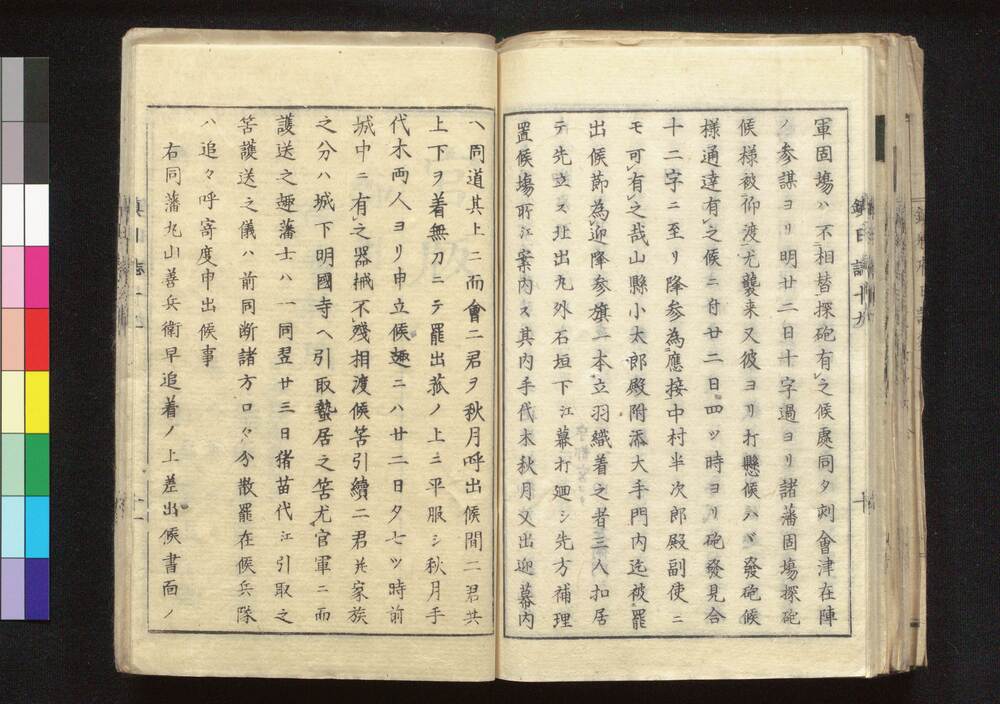 軍固塲ハ不相替探砲有之候處同夕刻會津在陣
ノ參謀ヨリ明廿二日十字過ヨリ諸藩固塲探砲
候様被仰渡尤襲来又彼ヨリ打懸候ハヾ發砲候
様通達有之候ニ付廿二日四ツ時ヨリ砲發見合
十二字ニ至リ降參為應接中村半次郎殿副使ニ
モ可有之哉山縣小太郎殿附添大手門内迄被罷
出候節為迎降參旗一本立羽織着之者三人扣居
テ先立ス北出丸外石垣下江幕打廻シ先方補理
置候塲所江案内ス其内手代木秋月又出迎幕内
ヘ同道其上ニ而會二君ヲ秋月呼出候間二君共
上下ヲ着無刀ニテ罷出菰ノ上ニ平服シ秋月手
代木両人ヨリ申立候趣ニハ廿二日夕七ツ時前
城中ニ有之器械不殘相渡候筈引續二君并家族
之分ハ城下明國寺ヘ引取蟄居之筈尤官軍ニ而
護送之趣藩士ハ一同翌廿三日猪苗代江引取之
筈護送之儀ハ前同断諸方口々分散罷在候兵隊
ハ追々呼寄度申出候事
右同藩丸山善兵衛早追着ノ上差出候書面ノ